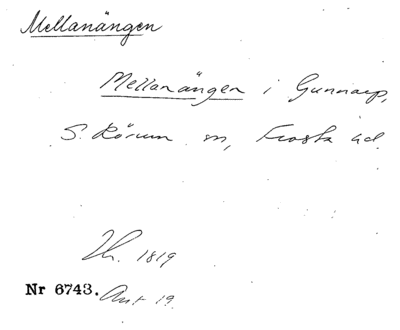 Mellanängen
Mellanängen i Gunnarp,
S. Rörum sn, Frosta hd.
1819
Nr 6743. Ant 19.